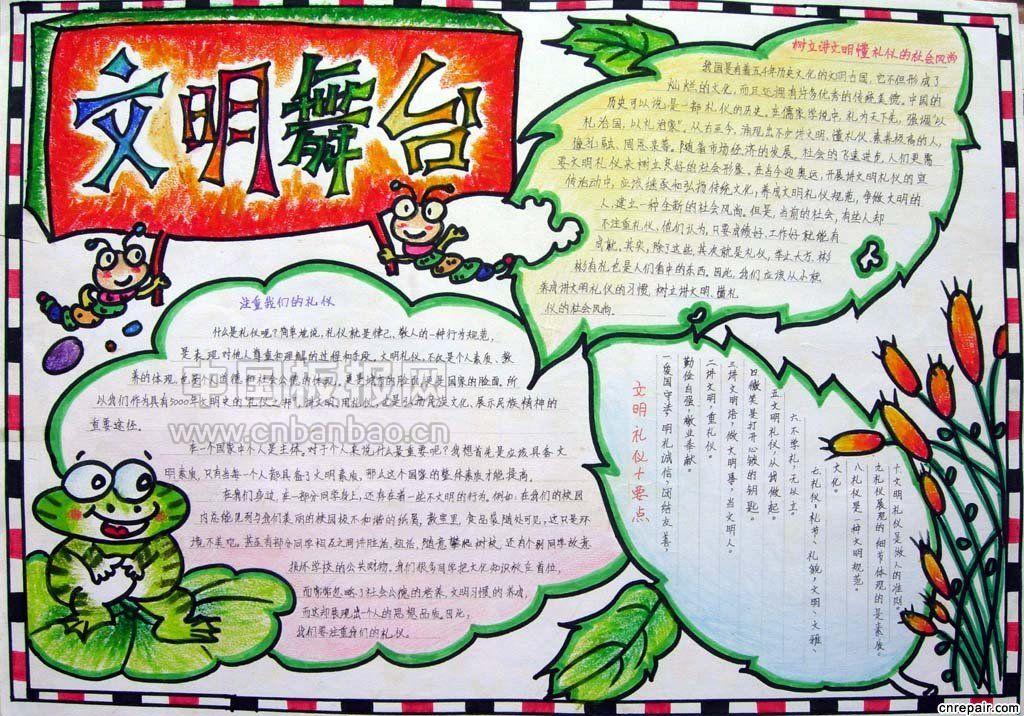 文明舞台
树立讲文明懂礼仪的社会风尚
我国是有着五千年历史文化的文明古国,它不但形成了
灿烂的文化,而且还拥有许多优秀的传统美德。中国的
历史可以说是一部礼仪的历史。在儒家学说中,礼为天下先,强调"以
礼治国,以礼治家"。从古至今,涌现出不少讲文明、懂礼仪、素养极高的人,
像孔融、周恩来等。随着市场经济的发展,社会的飞速进步,人们更需
要文明礼仪来树立良好的社会形象。在古今迎奥运,开展讲文明礼仪的宣
传活动中,应该继承和弘扬传统文化;养成文明礼仪规范,争做文明的
人,建立一种全新的社会风尚。但是,当前的社会,有些人却
不注重礼仪,他们认为,只要成绩好,工作好就能有
成就。其实,除了这些,其次就是礼仪,举止大方,彬
彬有礼也是人们看中的东西。因此,我们应该从小就
养成讲文明礼仪的习惯,树立讲文明、懂礼
仪的社会风尚。
注重我们的礼仪
什么是礼仪呢?简单地说,礼仪就是律己、敬人的一种行为规范,
是表现对他人尊重和理解的过程和手段。文明礼仪,不仅是个人素质、教
养的体现,也是个人道德和社会公德的体现。更是城市的脸面,更是国家的脸面。所
以我们作为具有5000年文明史的"礼仪之邦",讲文明用礼仪,也是弘扬民族文化、展示民族精神的
重要途径。
在一个国家中人是主体。对于个人来说什么最重要呢?我想首先是应该具备文
明素质,只有当每一个人都具备了文明素质,那么这个国家的整体素质才能提高。
在我们身边,在一部分同学身上,还存在着一些不文明的行为。例如:在我们的校园
内总能见到与我们美丽的校园极不和谐的纸屑,教室里,食品袋随处可见,这只是环
境不美观。甚至有部分同学相互之间讲脏话,粗话,随意攀爬树枝,还有个别同学故意
损坏学校的公共财物。身们很多同学把文化知识放在首位,
而常常忽略了社会公德的培养,文明习惯的养成,
而这却展现出一个人的思想品质。因此,
我们要注重我们的礼仪。
文明礼仪十要点
一爱国守法,明礼诚信,团结友善,
勤俭自强,敬业奉献。
二讲文明,重礼仪。
三讲文明语,做文明事,当文明人。
四微笑是打开心锁的钥匙。
五文明礼仪,从我做起。
六不学礼,无以立。
七礼仪:礼节、礼貌,文明、文雅、
文化。
八礼仪是一种文明规范。
九礼仪展现的细节体现的是素质。
十文明礼仪是做人的准则。
中国板报网
www.cnbanbao.cn
cnrepair.com